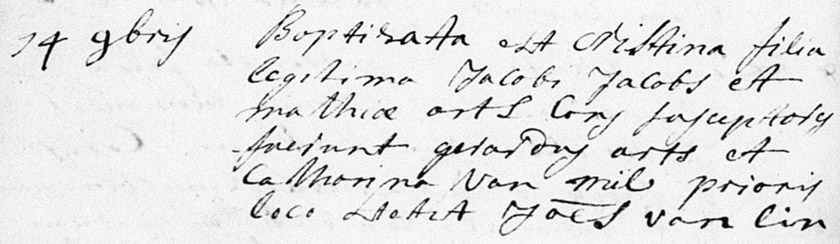 14 9bris Baptizata est Cristina filia
legitima Jacobi Jacobs et
mathiæ arts Conj susceptores
fuerunt gerardus arts et
Catharina Van mil prioris
loco stetit Joes van lin